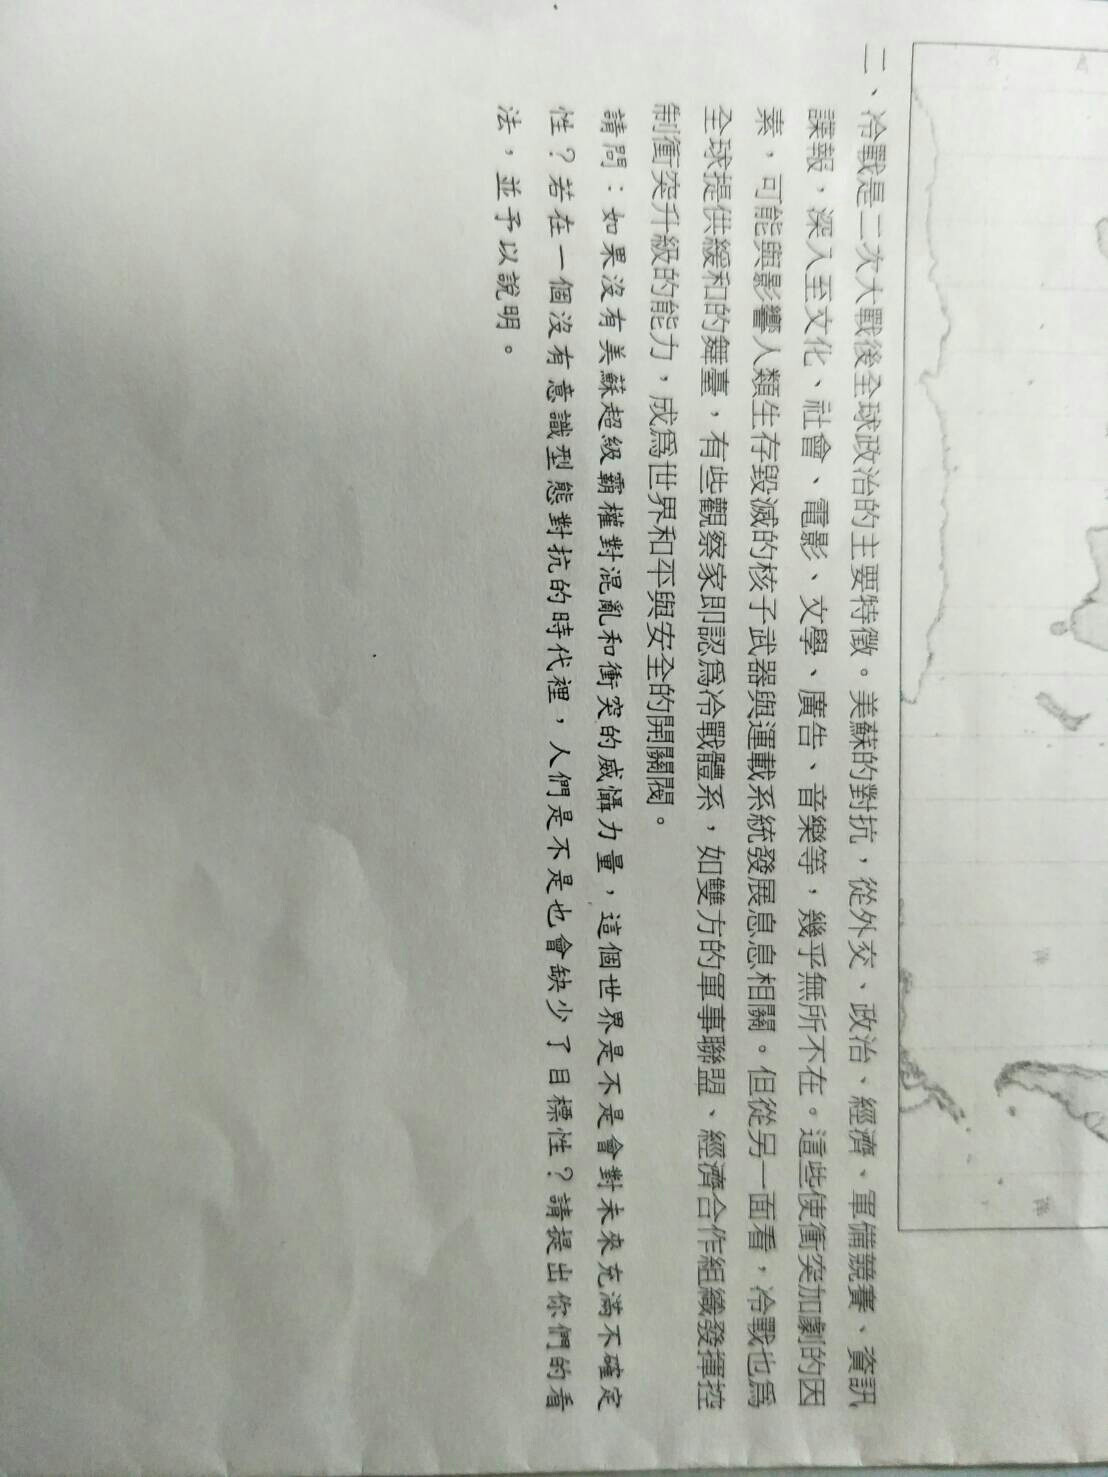 二、冷戰是二次大戰後全球政治的主要特徵。美蘇的對抗，從外交、政治、經濟、軍備競賽、資訊
諜報，深入至文化、社會、電影、文學、廣告、音樂等，幾乎無所不在。這些使衝突加劇的因
素，可能與影響人類生存毀滅的核子武器與運載系統發展息息相關。但從另一面看，冷戰也爲
全球提供緩和的舞臺，有些觀察家即認爲冷戰體系，如雙方的軍事聯盟、經濟合作組織發揮控
制衝突升級的能力，成爲世界和平與安全的開關閥。
請問：如果沒有美蘇超級霸權對混亂和衝突的威懾力量，這個世界是不是會對未來充滿不確定
性？若在一個沒有意識型態對抗的時代裡，人們是不是也會缺少了目標性？請提出你們的看
法，並予以說明。